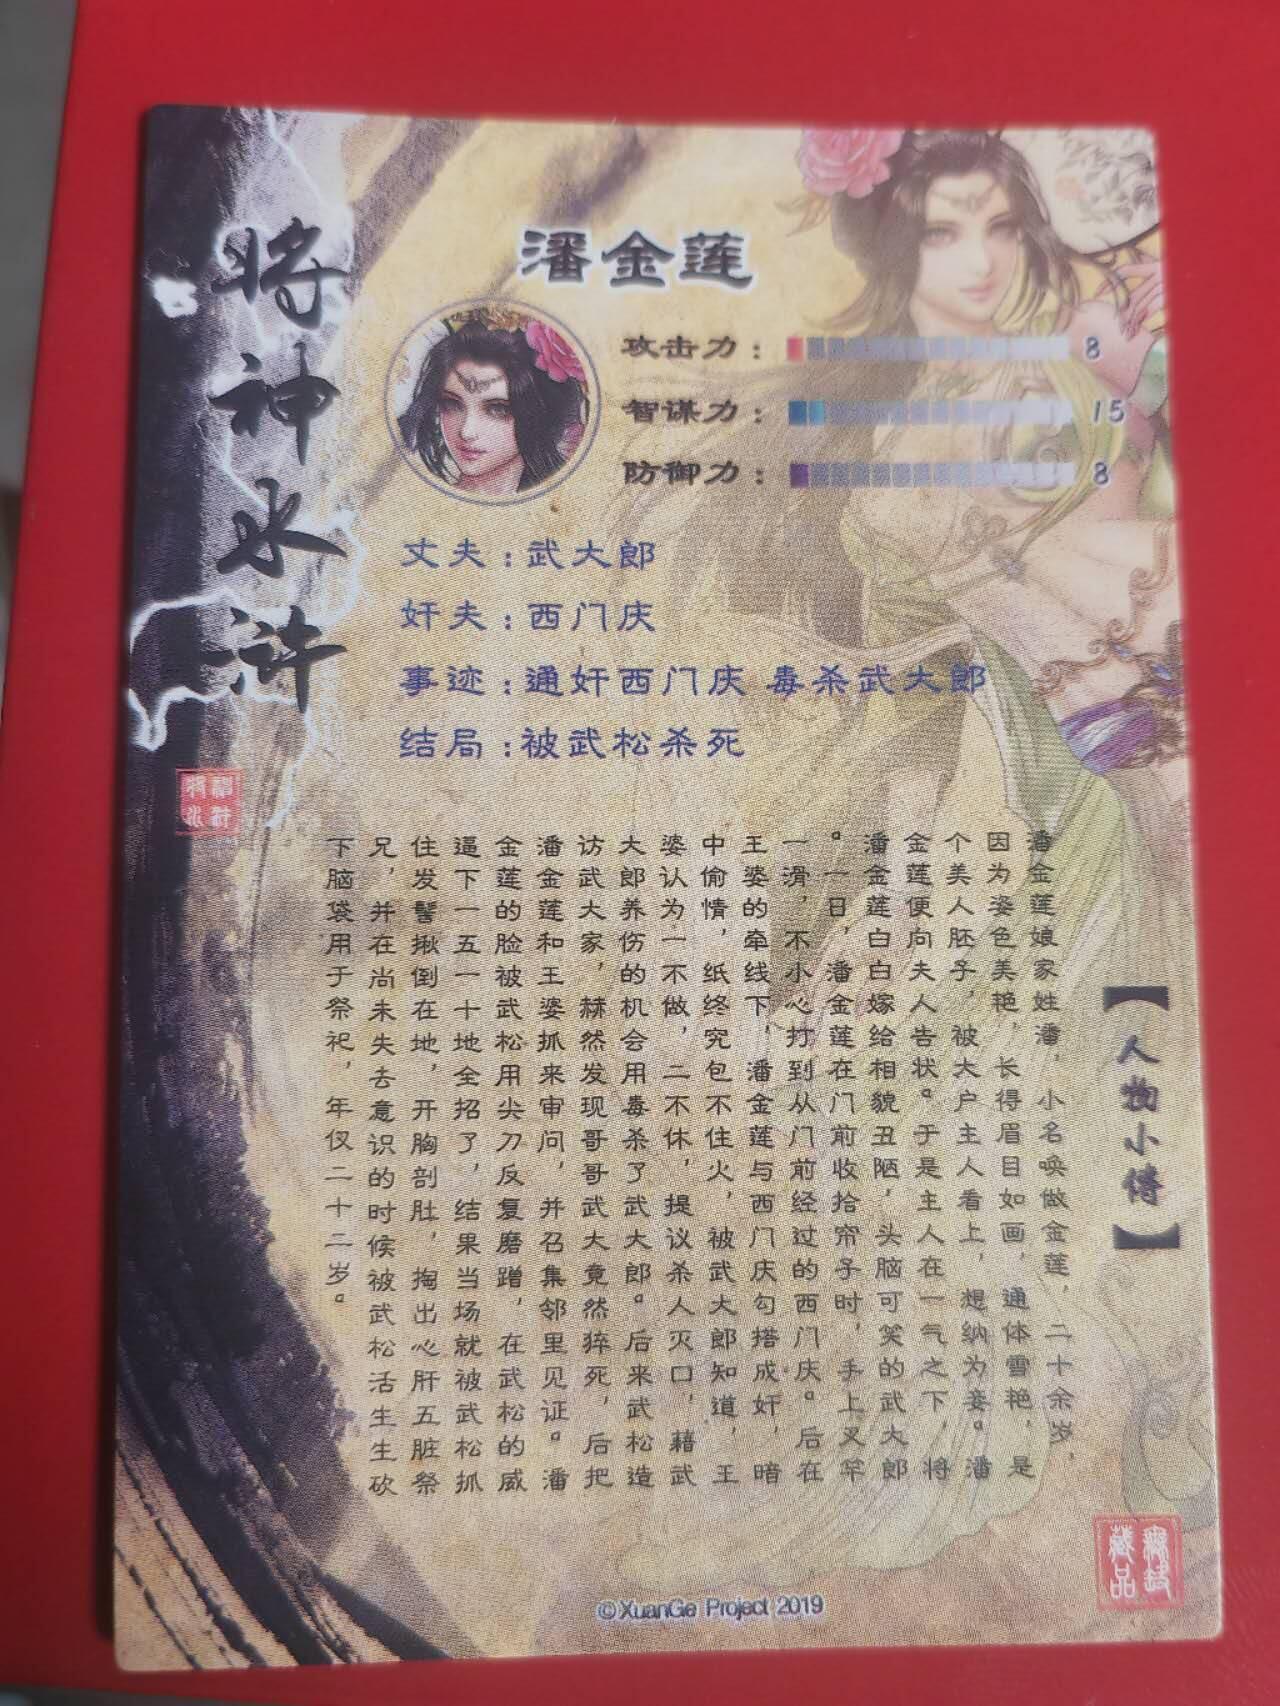 将神水浒
潘金莲
攻击力：8
智谋力：15
防御力：8
丈夫：武大郎
奸夫：西门庆
事迹：通奸西门庆 毒杀武大郎
结局：被武松杀死
【人物小传】
潘金莲娘家姓潘，小名唤做金莲，二十余岁，
因为姿色美艳，长得眉目如画，通体雪艳，是
个美人胚子，被大户主人看上，想纳为妾。潘
金莲便向夫人告状。于是主人在一气之下，将
潘金莲白白嫁给相貌丑陋，头脑可笑的武大郎
。一日，潘金莲在门前收拾帘子时，手上叉竿
一滑，不小心打到从门前经过的西门庆。后在
王婆的牵线下，潘金莲与西门庆勾搭成奸，暗
中偷情，纸终究包不住火，被武大郎知道，王
婆认为一不做，二不休，提议杀人灭口，藉武
大郎养伤的机会用毒杀了武大郎。后来武松造
访武大家，赫然发现哥哥武大竟然猝死，后把
潘金莲和王婆抓来审问，并召集邻里见证。潘
金莲的脸被武松用尖刀反复磨蹭，在武松的威
逼下一五一十地全招了，结果当场就被武松抓
住发髻揪倒在地，开胸剖肚，掏出心肝五脏祭
兄，并在尚未失去意识的时候被武松活生生砍
下脑袋用于祭祀，年仅二十二岁。
藏品
©XuanGe Project 2019